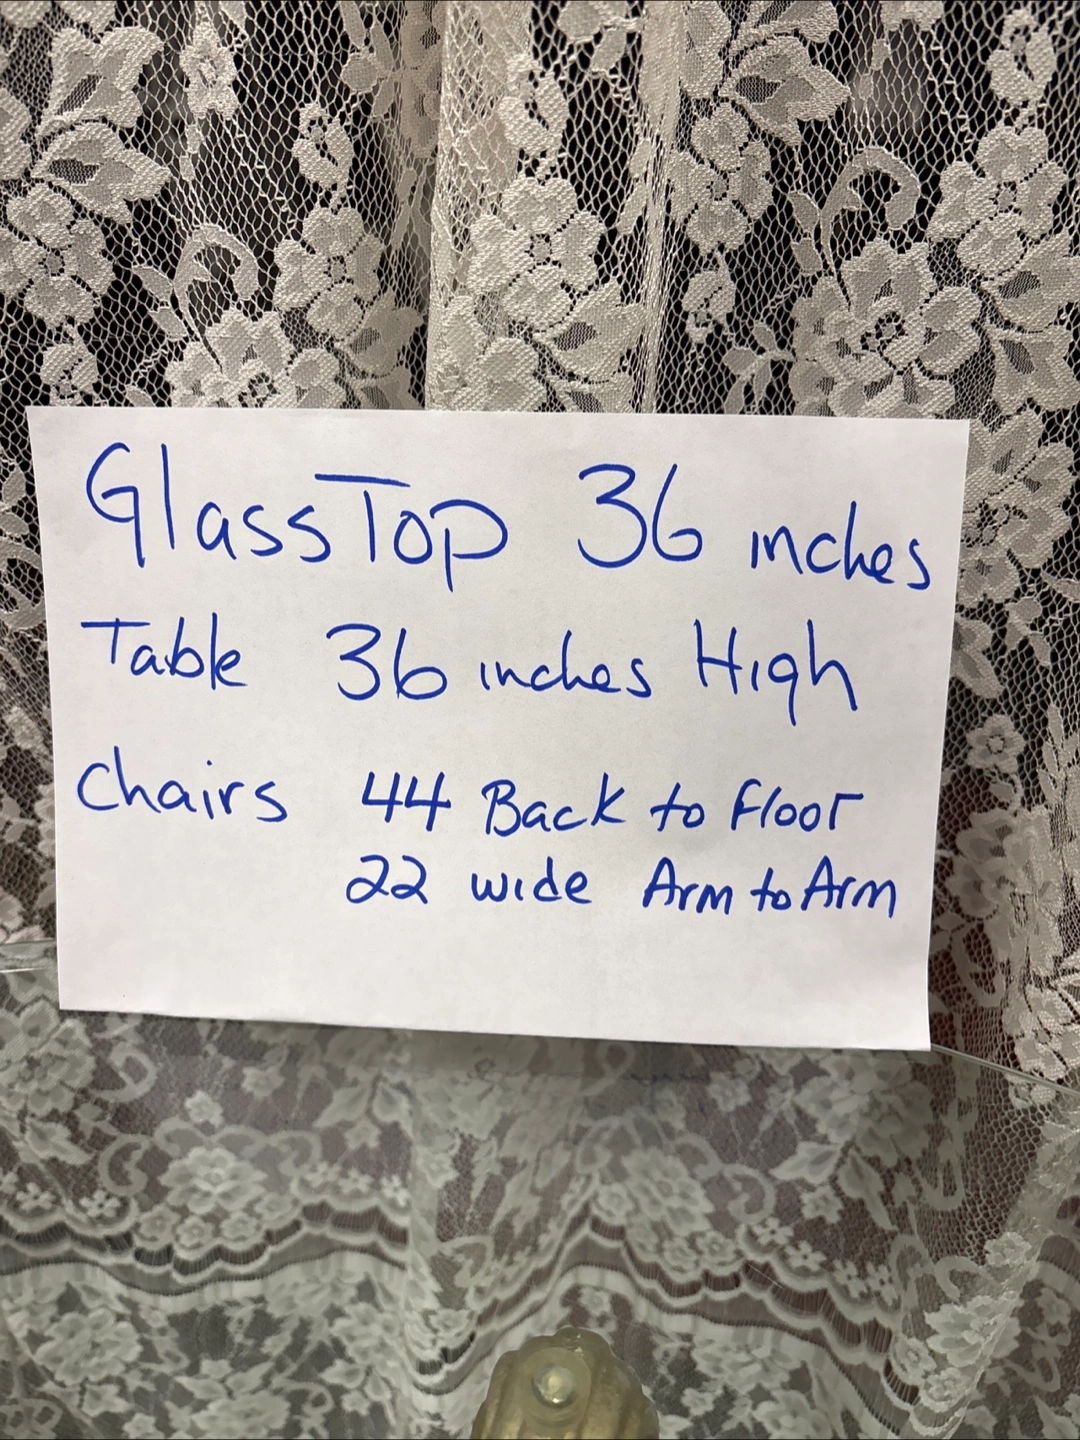 GlassTop 36 inches
Table 36 inches High
Chairs 44 Back to Floor
22 wide Arm to Arm